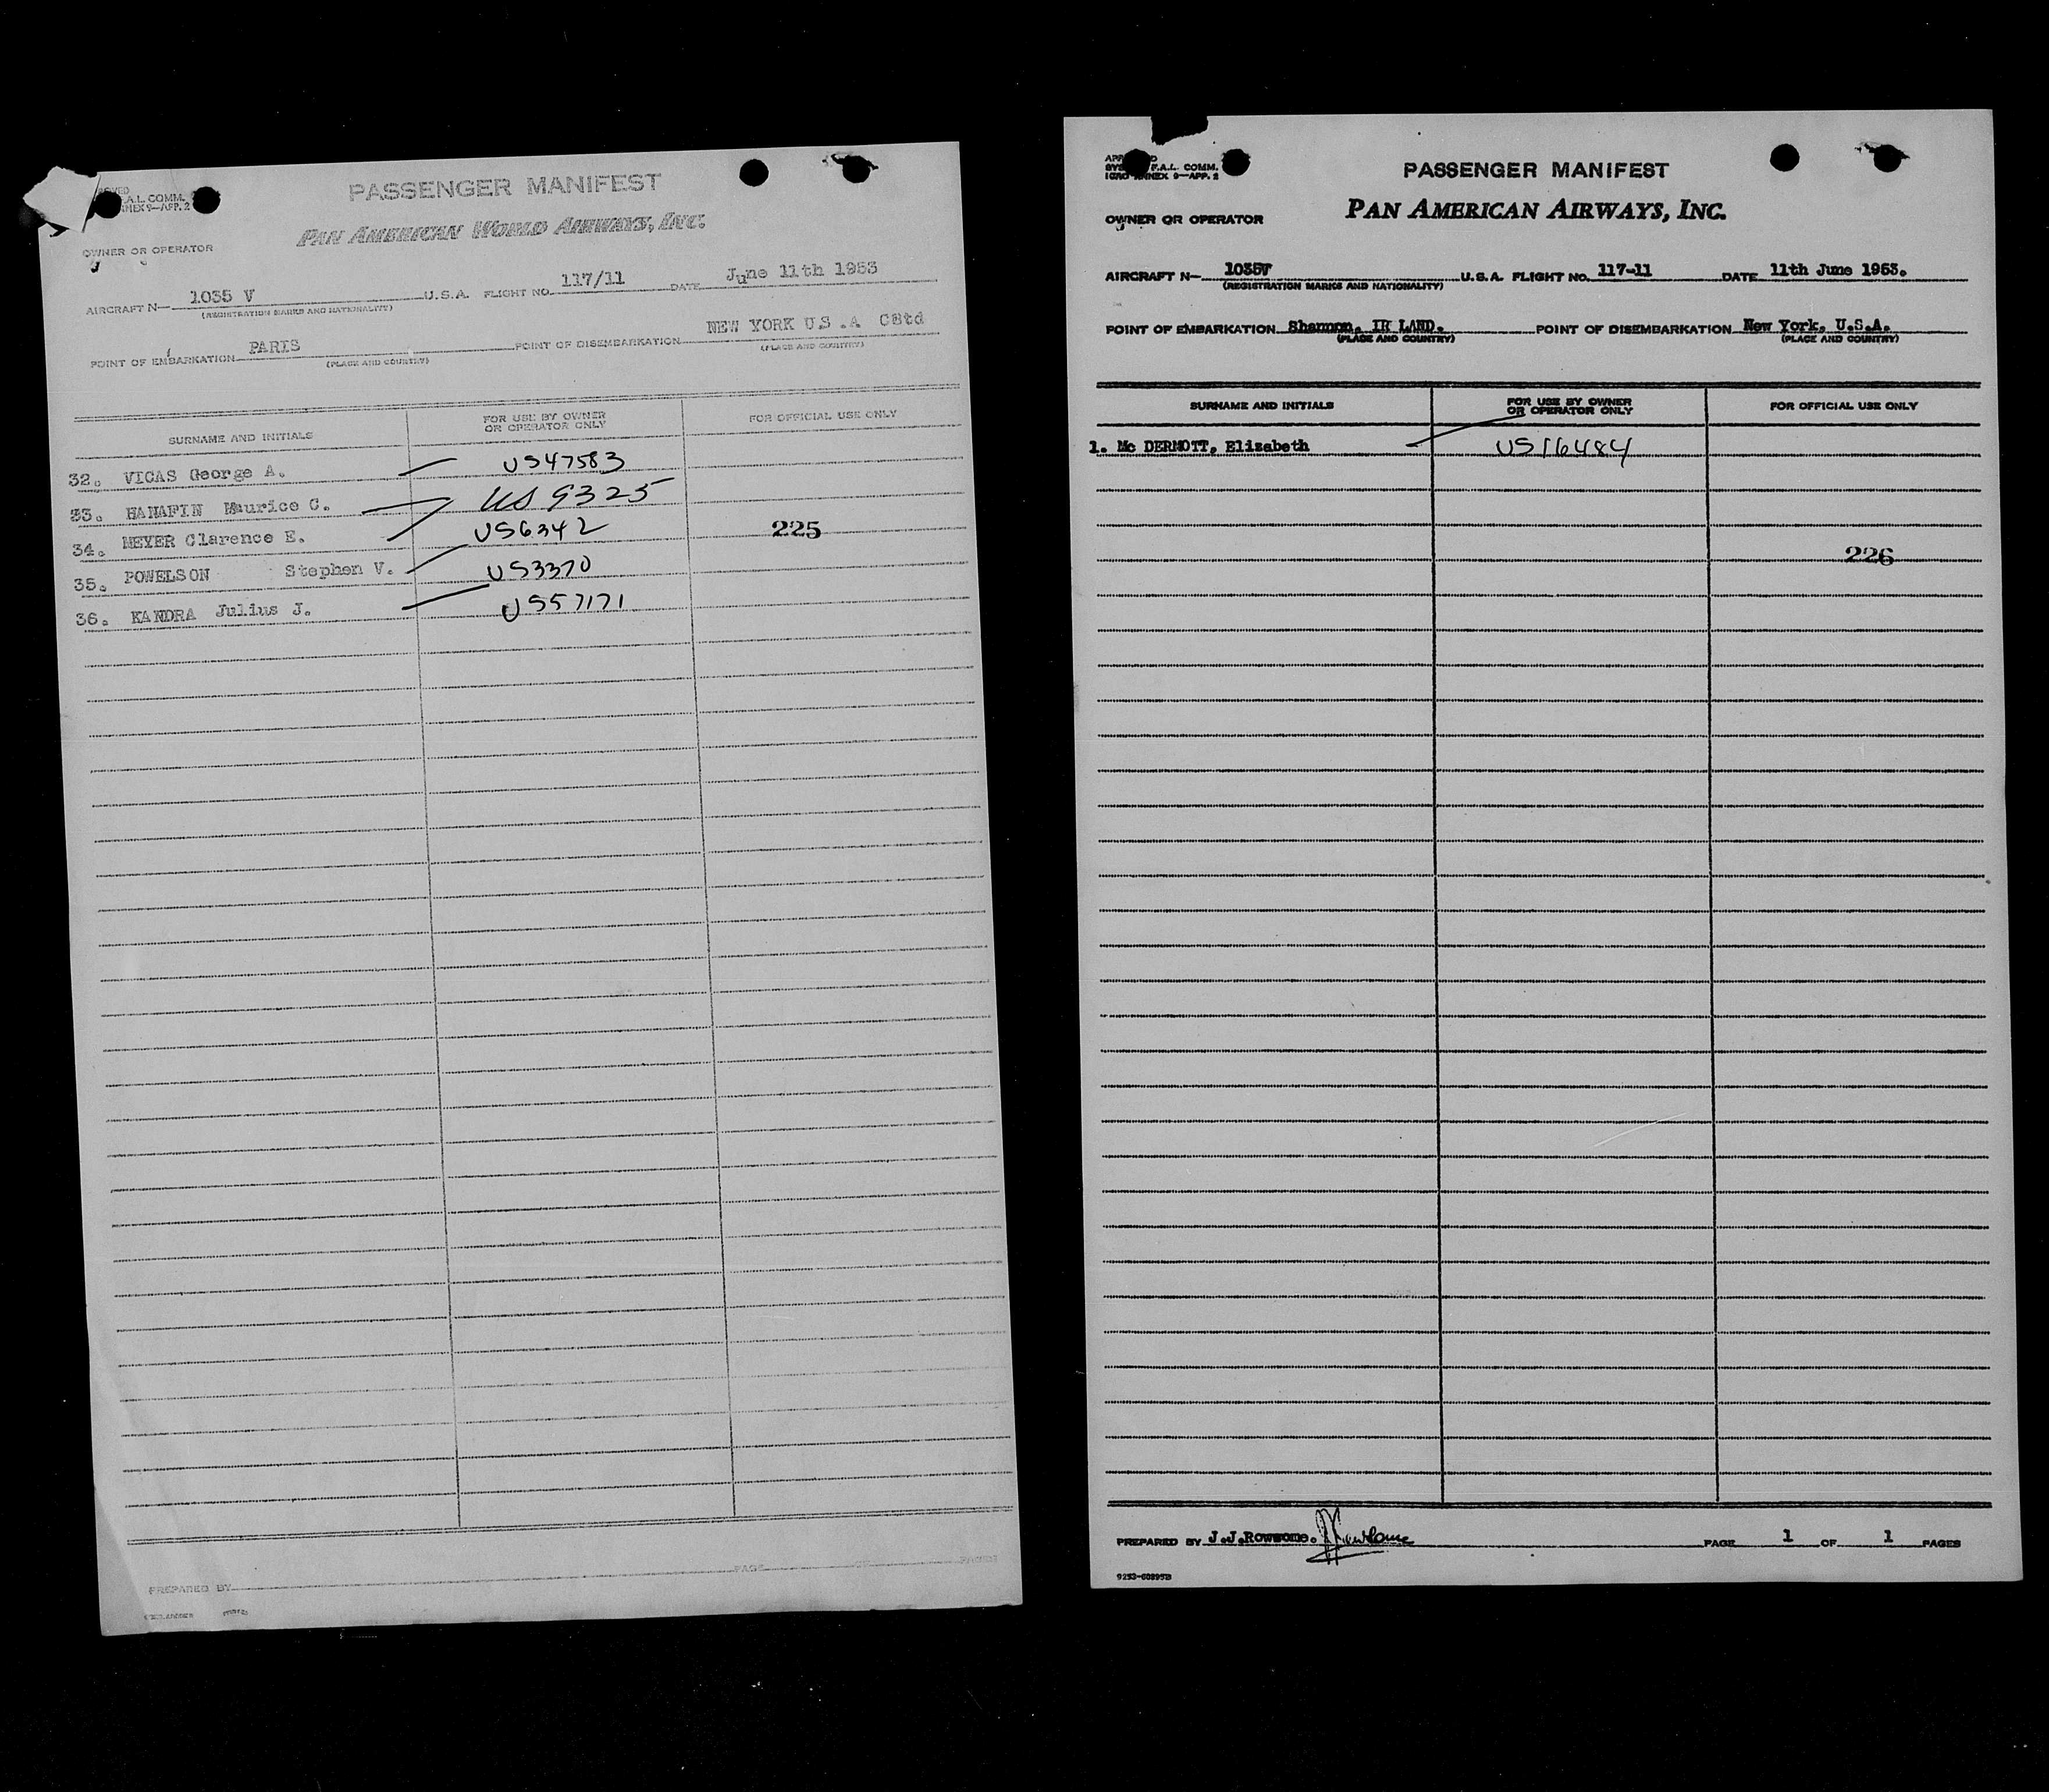 PASSENGER MANIFEST
A.L. COMM.
9—APP. 2
PAN AMERICAN WORLD AIRWAYS, INC.
OWNER OR OPERATOR
AIRCRAFT N— 1035 V U.S.A. FLIGHT NO. 117/11 DATE June 11th 1953
(REGISTRATION MARKS AND NATIONALITY)
POINT OF EMBARKATION PARIS POINT OF DISEMBARKATION NEW YORK U.S.A CStd
(PLACE AND COUNTRY) (PLACE AND COUNTRY)
SURNAME AND INITIALS FOR USE BY OWNER OR OPERATOR ONLY FOR OFFICIAL USE ONLY
32. VICAS George A. US47583
33. HANAFIN Maurice C. US 9325
34. MEYER Clarence E. US6342 225
35. POWELSON Stephen V. US3370
36. KANDRA Julius J. US57171
PREPARED BY PAGE OF PAGES
F.A.L. COMM.
ANNEX 9—APP. 2
PASSENGER MANIFEST
PAN AMERICAN AIRWAYS, INC.
OWNER OR OPERATOR
AIRCRAFT N— 1035V U.S.A. FLIGHT NO. 117-11 DATE 11th June 1953.
(REGISTRATION MARKS AND NATIONALITY)
POINT OF EMBARKATION Shannon, IR LAND. POINT OF DISEMBARKATION New York, U.S.A.
(PLACE AND COUNTRY) (PLACE AND COUNTRY)
SURNAME AND INITIALS FOR USE BY OWNER OR OPERATOR ONLY FOR OFFICIAL USE ONLY
1. Mc DERMOTT, Elizabeth US16484
226
PREPARED BY J.J.Rowsome. PAGE 1 OF 1 PAGES